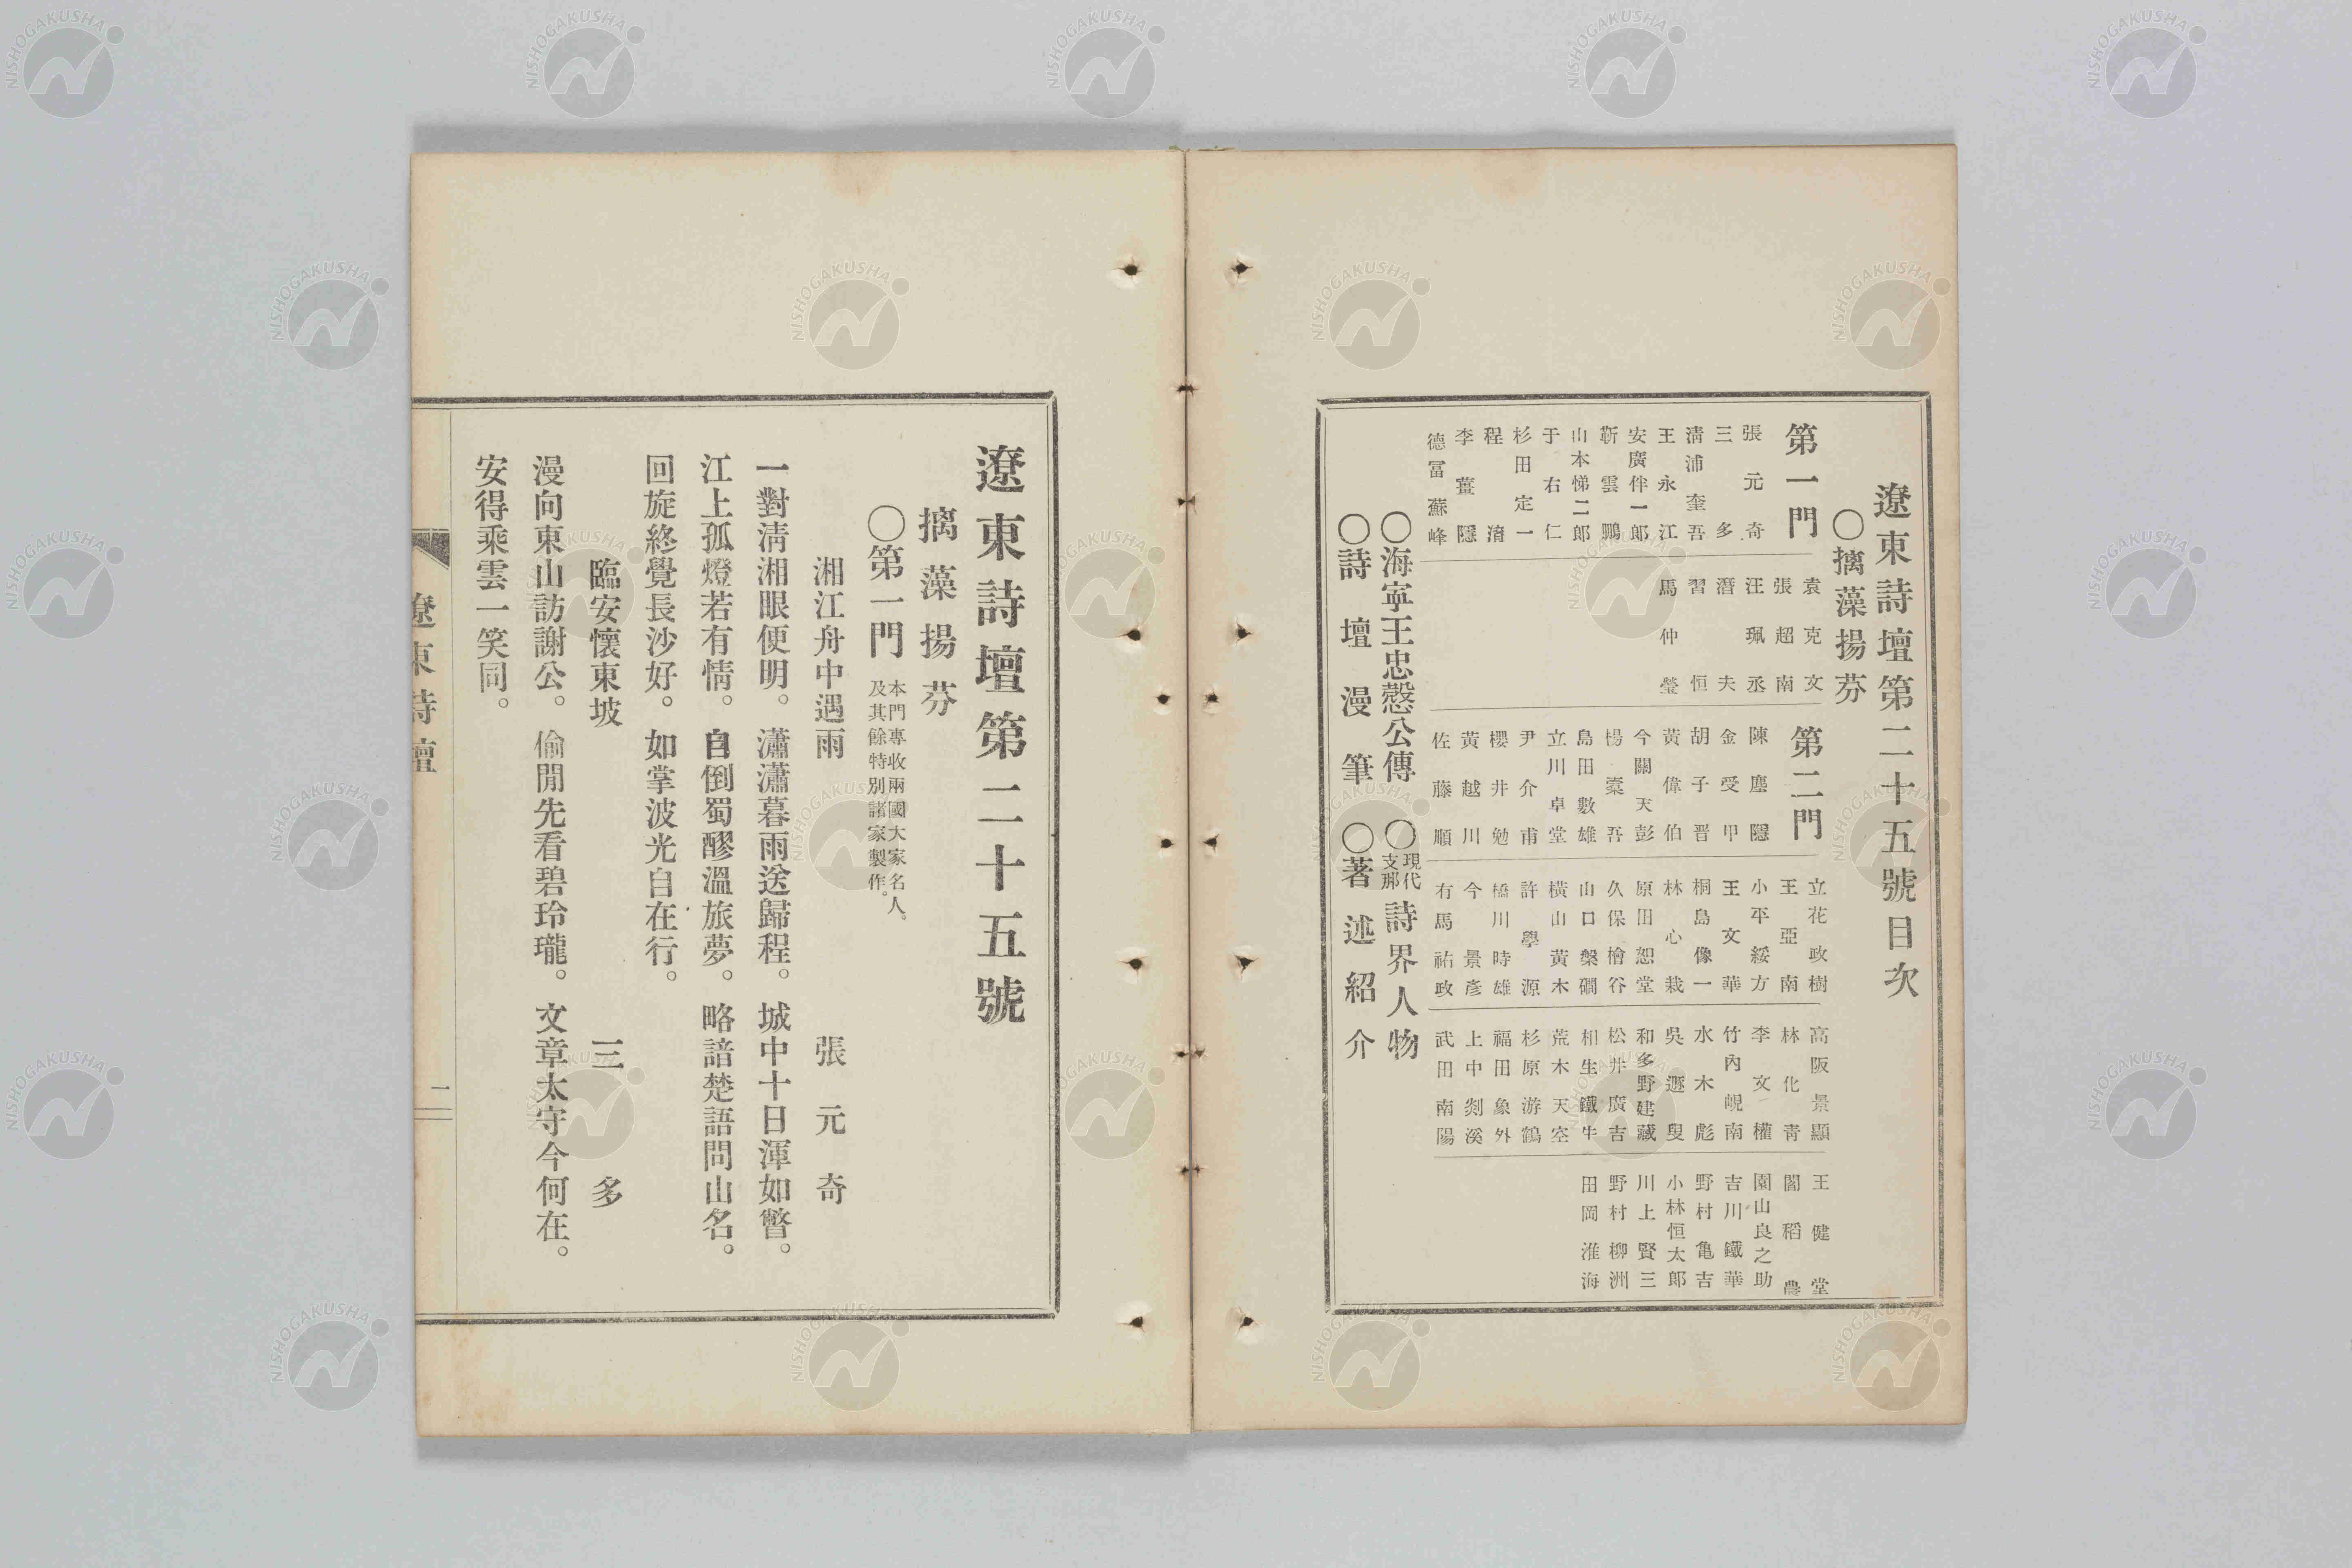 遼東詩壇第二十五號目次
〇摛藻揚芬
第一門
張元奇
三多
淸浦奎吾
王永江
安廣伴一郎
靳雲鵬
山本悌二郎
于右仁
杉田定一
程淯
李薑隱
德富蘇峰
袁克文
張超南
汪珮丞
潛夫
習恒
馬仲瑩
第二門
陳塵隱
金受甲
胡子晋
黃偉伯
今關天彭
楊槖吾
島田數雄
立川卓堂
尹介甫
櫻井勉
黃越川
佐藤順
立花政樹
王亞南
小平綏方
王文華
桐島像一
林心栽
原田恕堂
久保檜谷
山口槃磵
橫山黃木
許學源
橋川時雄
今景彥
有馬祐政
高阪景顯
林化靑
李文權
竹內峴南
水木彪
吳遯叟
和多野建藏
松井廣吉
相生鐵牛
荒木天空
杉原游鶴
福田象外
上中剡溪
武田南陽
王健堂
閣稻農
園山良之助
吉川鐵華
野村亀吉
小林恒太郎
川上賢三
野村柳洲
田岡淮海
〇海寧王忠慤公傳 〇現代支那詩界人物
〇詩壇漫筆 〇著述紹介
遼東詩壇第二十五號
摛藻揚芬
〇第一門 本門專收兩國大家名人。
及其餘特別諸家製作。
湘江舟中遇雨 張元奇
一對淸湘眼便明。瀟瀟暮雨送歸程。城中十日渾如瞥。
江上孤燈若有情。自倒蜀醪溫旅夢。略諳楚語問山名。
回旋終覺長沙好。如掌波光自在行。
臨安懷東坡 三多
漫向東山訪謝公。偷閒先看碧玲瓏。文章太守今何在。
安得乘雲一笑同。
遼東詩壇
一
NISHOGAKUSHA